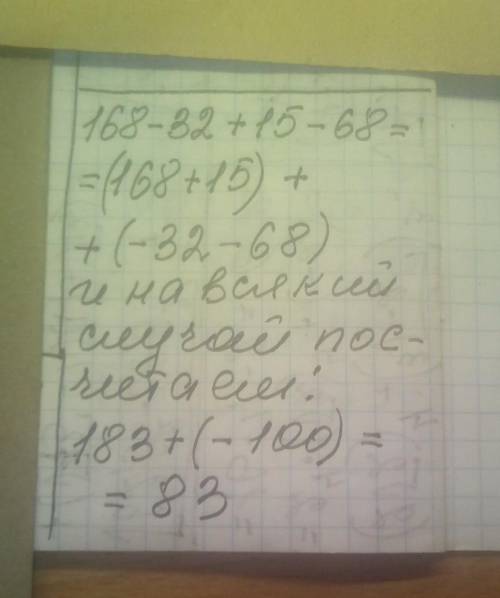 168-32+15-68=
=(168+15) +
+(-32-68)
и на всякий
случай пос-
читаем:
183+(-100) =
= 83